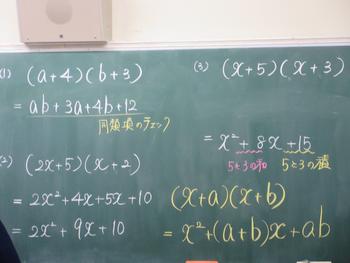 (1) (a+4)(b+3)
= ab+3a+4b+12
同類項のチェック
(2) (2x+5)(x+2)
= 2x²+4x+5x+10
= 2x²+9x+10
(3) (x+5)(x+3)
= x²+8x+15
5と3の和 5と3の積
(x+a)(x+b)
= x²+(a+b)x+ab